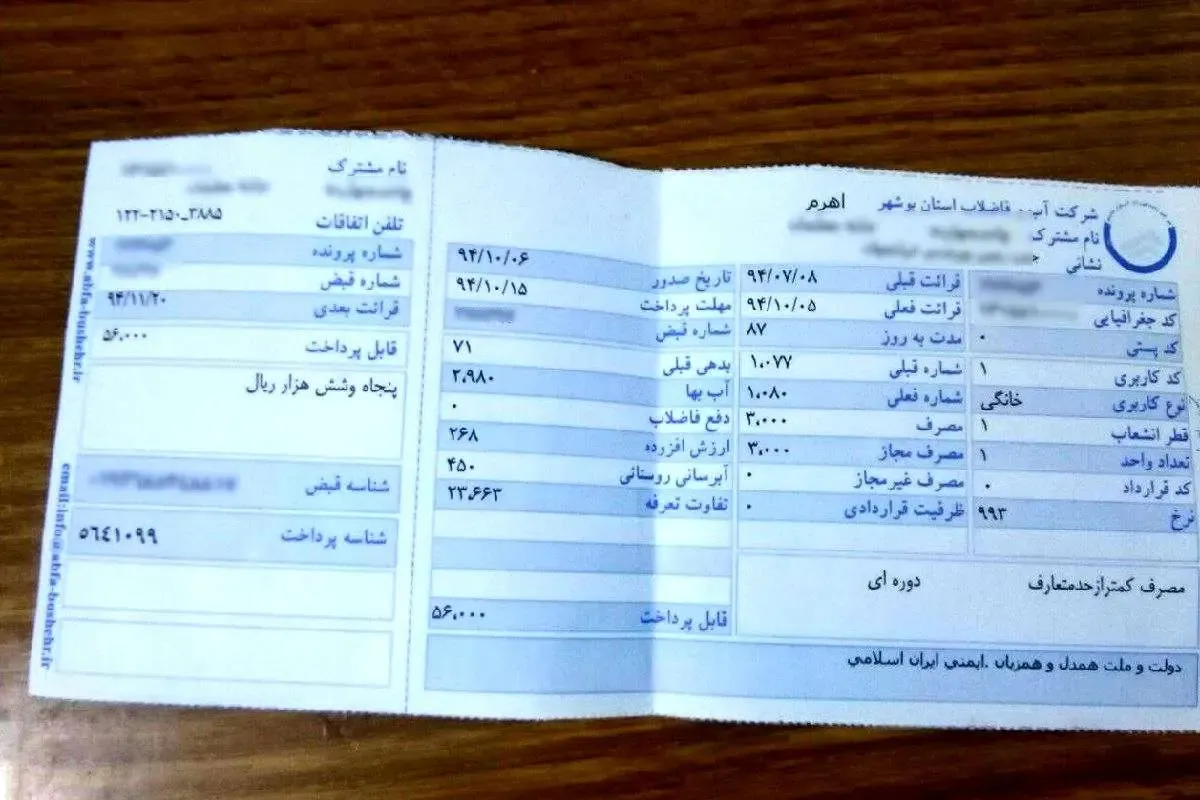 شرکت آب فاضلاب استان بوشهر اهرم
نام مشترک
نشانی
شماره پرونده
کد جغرافیایی
کد پستی ۰
کد کاربری ۱
نوع کاربری خانگی
قطر انشعاب ۱
تعداد واحد ۱
کد قرارداد ۰
نرخ ۹۹۳
قرائت قبلی ۹۴/۰۷/۰۸
قرائت فعلی ۹۴/۱۰/۰۵
مدت به روز ۸۷
شماره قبلی ۱،۰۷۷
شماره فعلی ۱،۰۸۰
مصرف ۳،۰۰۰
مصرف مجاز ۳،۰۰۰
مصرف غیر مجاز ۰
ظرفیت قراردادی ۰
تاریخ صدور ۹۴/۱۰/۰۶
مهلت پرداخت ۹۴/۱۰/۱۵
شماره قبض
بدهی قبلی ۷۱
آب بها ۲،۹۸۰
دفع فاضلاب ۰
ارزش افزوده ۲۶۸
آبرسانی روستائی ۴۵۰
تفاوت تعرفه ۲۳،۶۶۳
قابل پرداخت ۵۶،۰۰۰
مصرف کمترازحدمتعارف دوره ای
دولت و ملت همدل و همزبان .ایمنی ایران اسلامی
نام مشترک
تلفن اتفاقات ۱۲۲-۲۱۵۰_۳۸۸۵
شماره پرونده
شماره قبض
قرائت بعدی ۹۴/۱۱/۲۰
قابل پرداخت ۵۶،۰۰۰
پنجاه وشش هزار ریال
شناسه قبض
شناسه پرداخت ۵۶۴۱۰۹۹
www.abfa-bushehr.ir
email:info@abfa-bushehr.ir